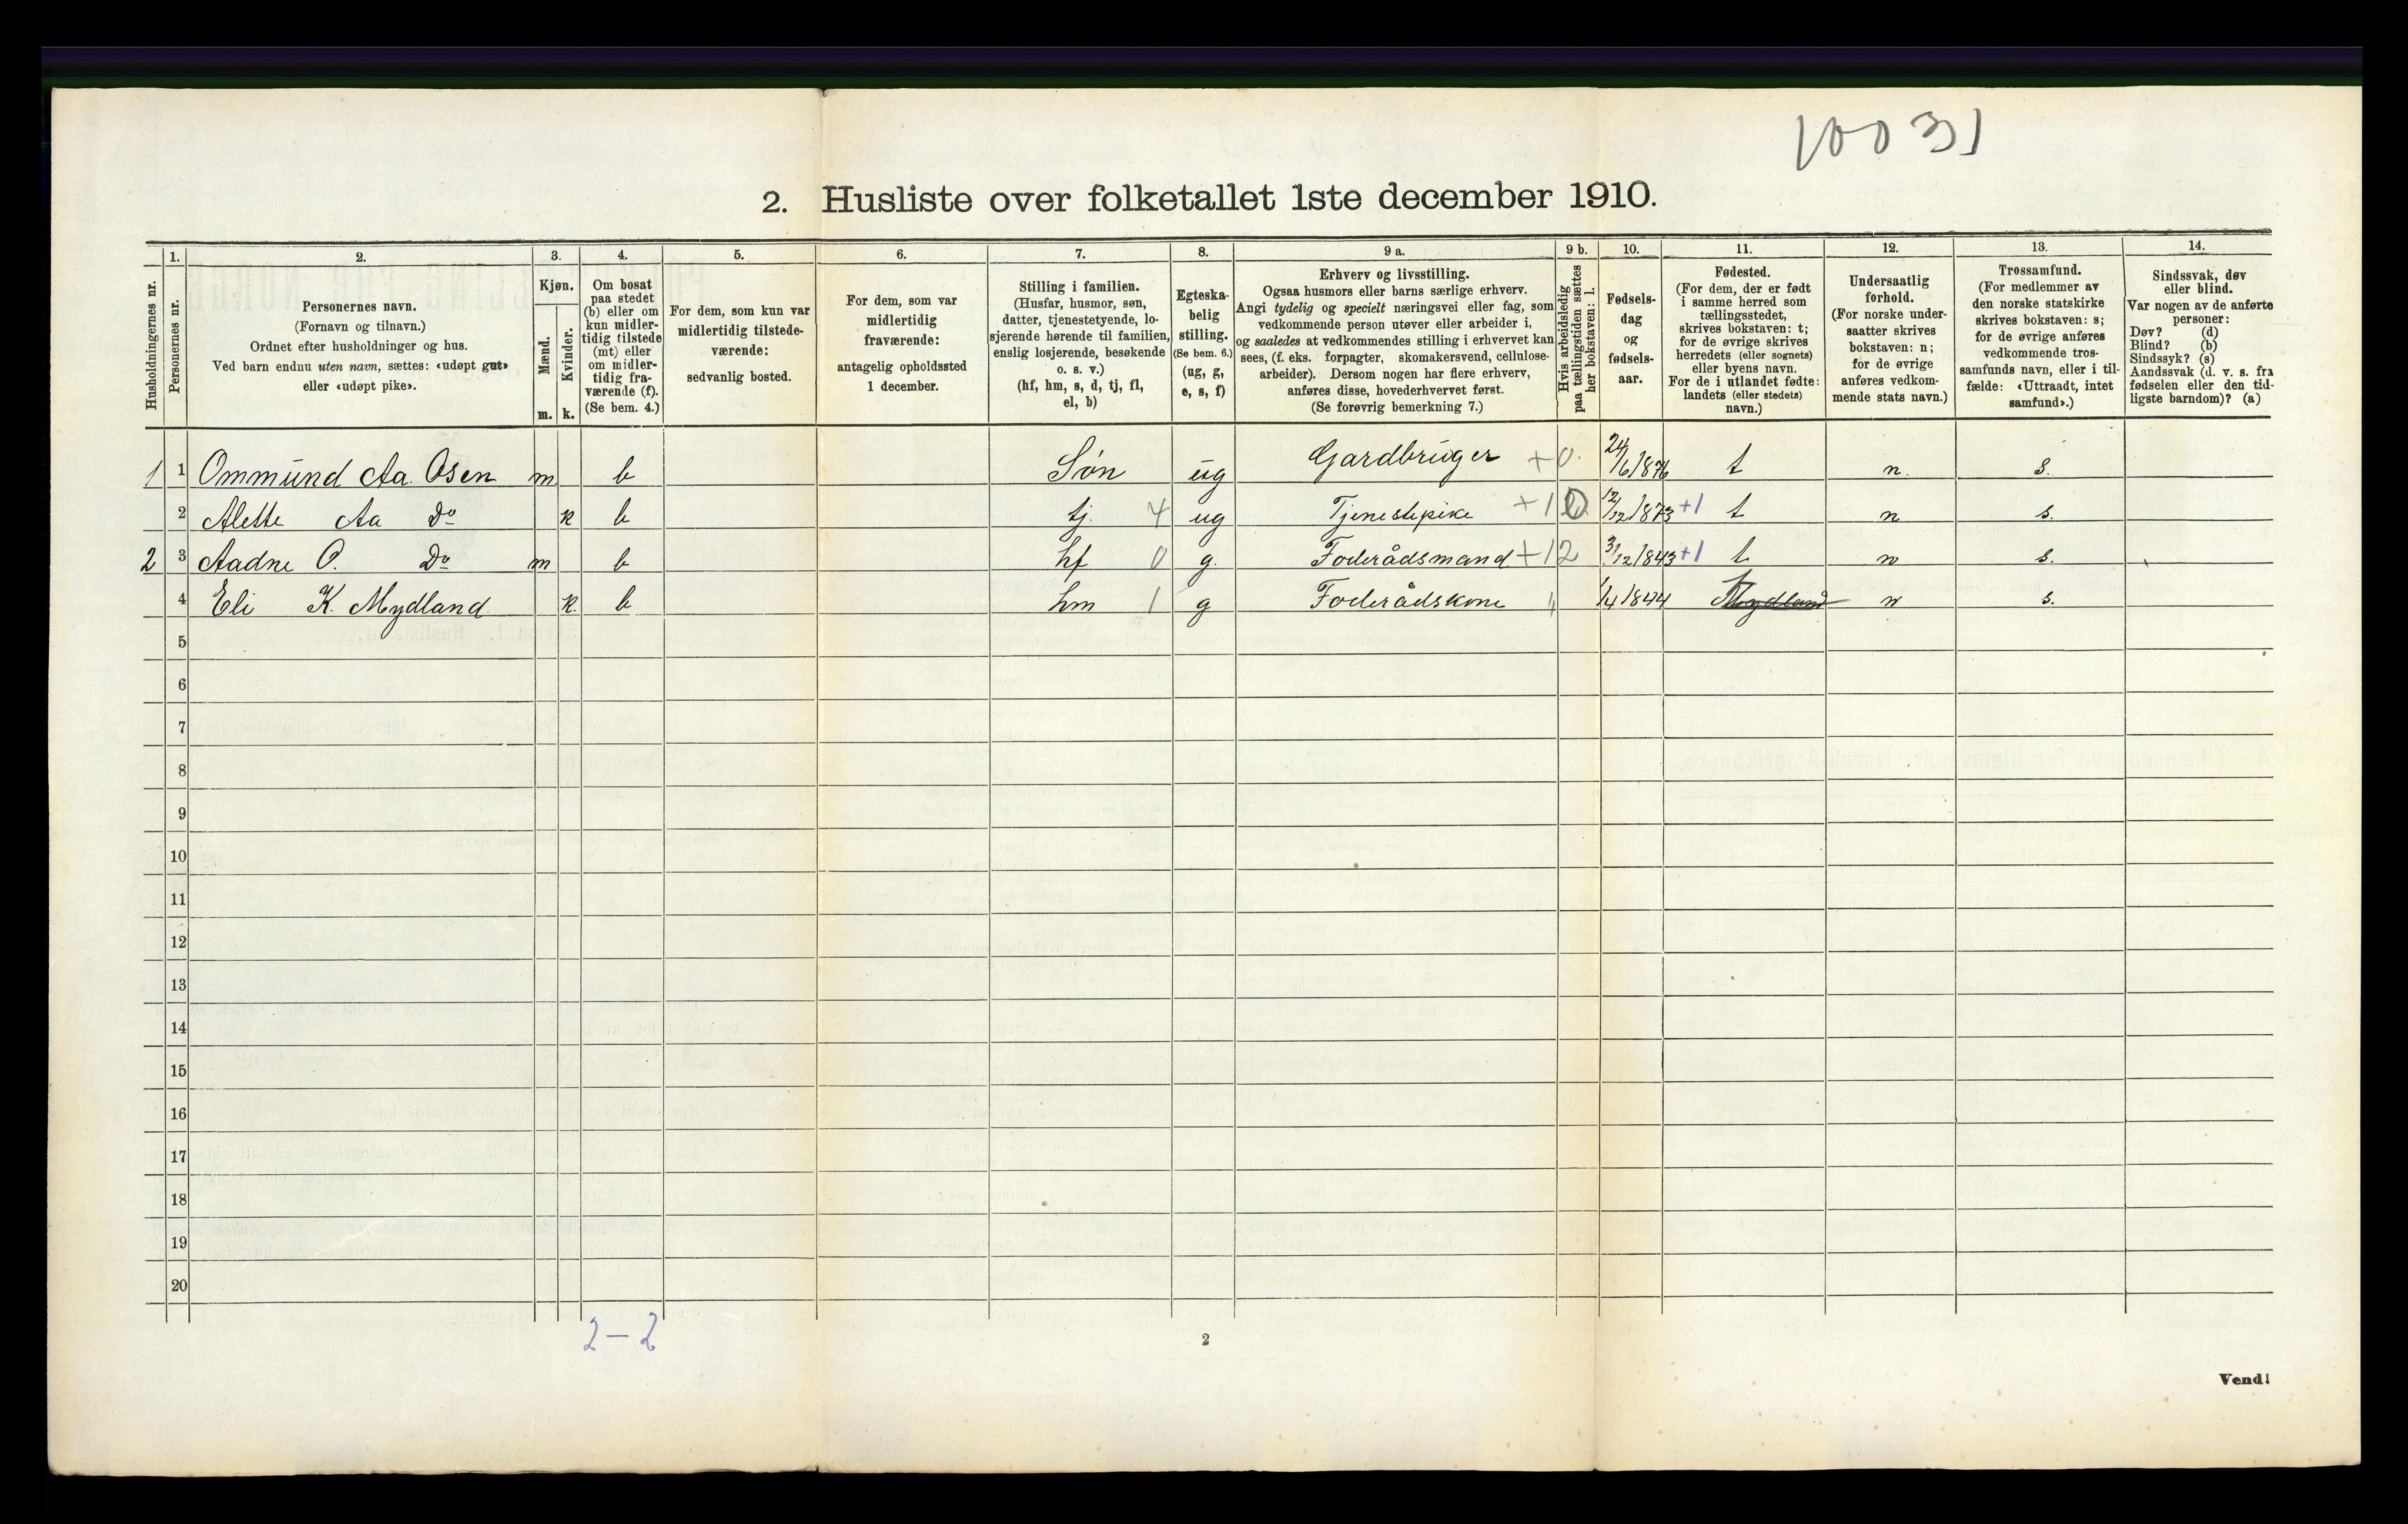 10031
2. Husliste over folketallet 1ste december 1910.
Husholdningernes nr.
1.
Personernes nr.
2.
Personernes navn.
(Fornavn og tilnavn.)
Ordnet efter husholdninger og hus.
Ved barn endnu uten navn, sættes: «udøpt gut»
eller «udøpt pike».
3.
Kjøn.
Mænd.
m.
Kvinder.
k.
4.
Om bosat
paa stedet
(b) eller om
kun midler-
tidig tilstede
(mt) eller
om midler-
tidig fra-
værende (f).
(Se bem. 4.)
5.
For dem, som kun var
midlertidig tilstede-
værende:
sedvanlig bosted.
6.
For dem, som var
midlertidig
fraværende:
antagelig opholdssted
1 december.
7.
Stilling i familien.
(Husfar, husmor, søn,
datter, tjenestetyende, lo-
sjerende hørende til familien,
enslig losjerende, besøkende
o. s. v.)
(hf, hm, s, d, tj, fl,
el, b)
8.
Egteska-
belig
stilling.
(Se bem. 6.)
(ug, g,
e, s, f)
9 a.
Erhverv og livsstilling.
Ogsaa husmors eller barns særlige erhverv.
Angi tydelig og specielt næringsvei eller fag, som
vedkommende person utøver eller arbeider i,
og saaledes at vedkommendes stilling i erhvervet kan
sees, (f. eks. forpagter, skomakersvend, cellulose-
arbeider). Dersom nogen har flere erhverv,
anføres disse, hovederhvervet først.
(Se forøvrig bemerkning 7.)
9 b.
Hvis arbeidsledig
paa tællingstiden sættes
her bokstaven: l.
10.
Fødsels-
dag
og
fødsels-
aar.
11.
Fødested.
(For dem, der er født
i samme herred som
tællingsstedet,
skrives bokstaven: t;
for de øvrige skrives
herredets (eller sognets)
eller byens navn.
For de i utlandet fødte:
landets (eller stedets)
navn.)
12.
Undersaatlig
forhold.
(For norske under-
saatter skrives
bokstaven: n;
for de øvrige
anføres vedkom-
mende stats navn.)
13.
Trossamfund.
(For medlemmer av
den norske statskirke
skrives bokstaven: s;
for de øvrige anføres
vedkommende tros-
samfunds navn, eller i til-
fælde: «Uttraadt, intet
samfund».)
14.
Sindssvak, døv
eller blind.
Var nogen av de anførte
personer:
Døv? (d)
Blind? (b)
Sindssyk? (s)
Aandssvak (d. v. s. fra
fødselen eller den tid-
ligste barndom)? (a)
1 1 Ommund Aa. Osen m b Søn ug Gardbruger +0. 24/6 1876 t n. s.
2 Alette Aa Do k b tj. 4 ug Tjenestepike +10 12/12 1873 +1 t n s.
2 3 Aadne O. Do m b hf 0 g. Foderådsmand +12 3/12 1843 +1 t n s.
4 Eli K. Mydland k. b hm 1 g Foderådskone " 1/4 1844 Mydland n s.
5
6
7
8
9
10
11
12
13
14
15
16
17
18
19
20
2-2
2
Vend!